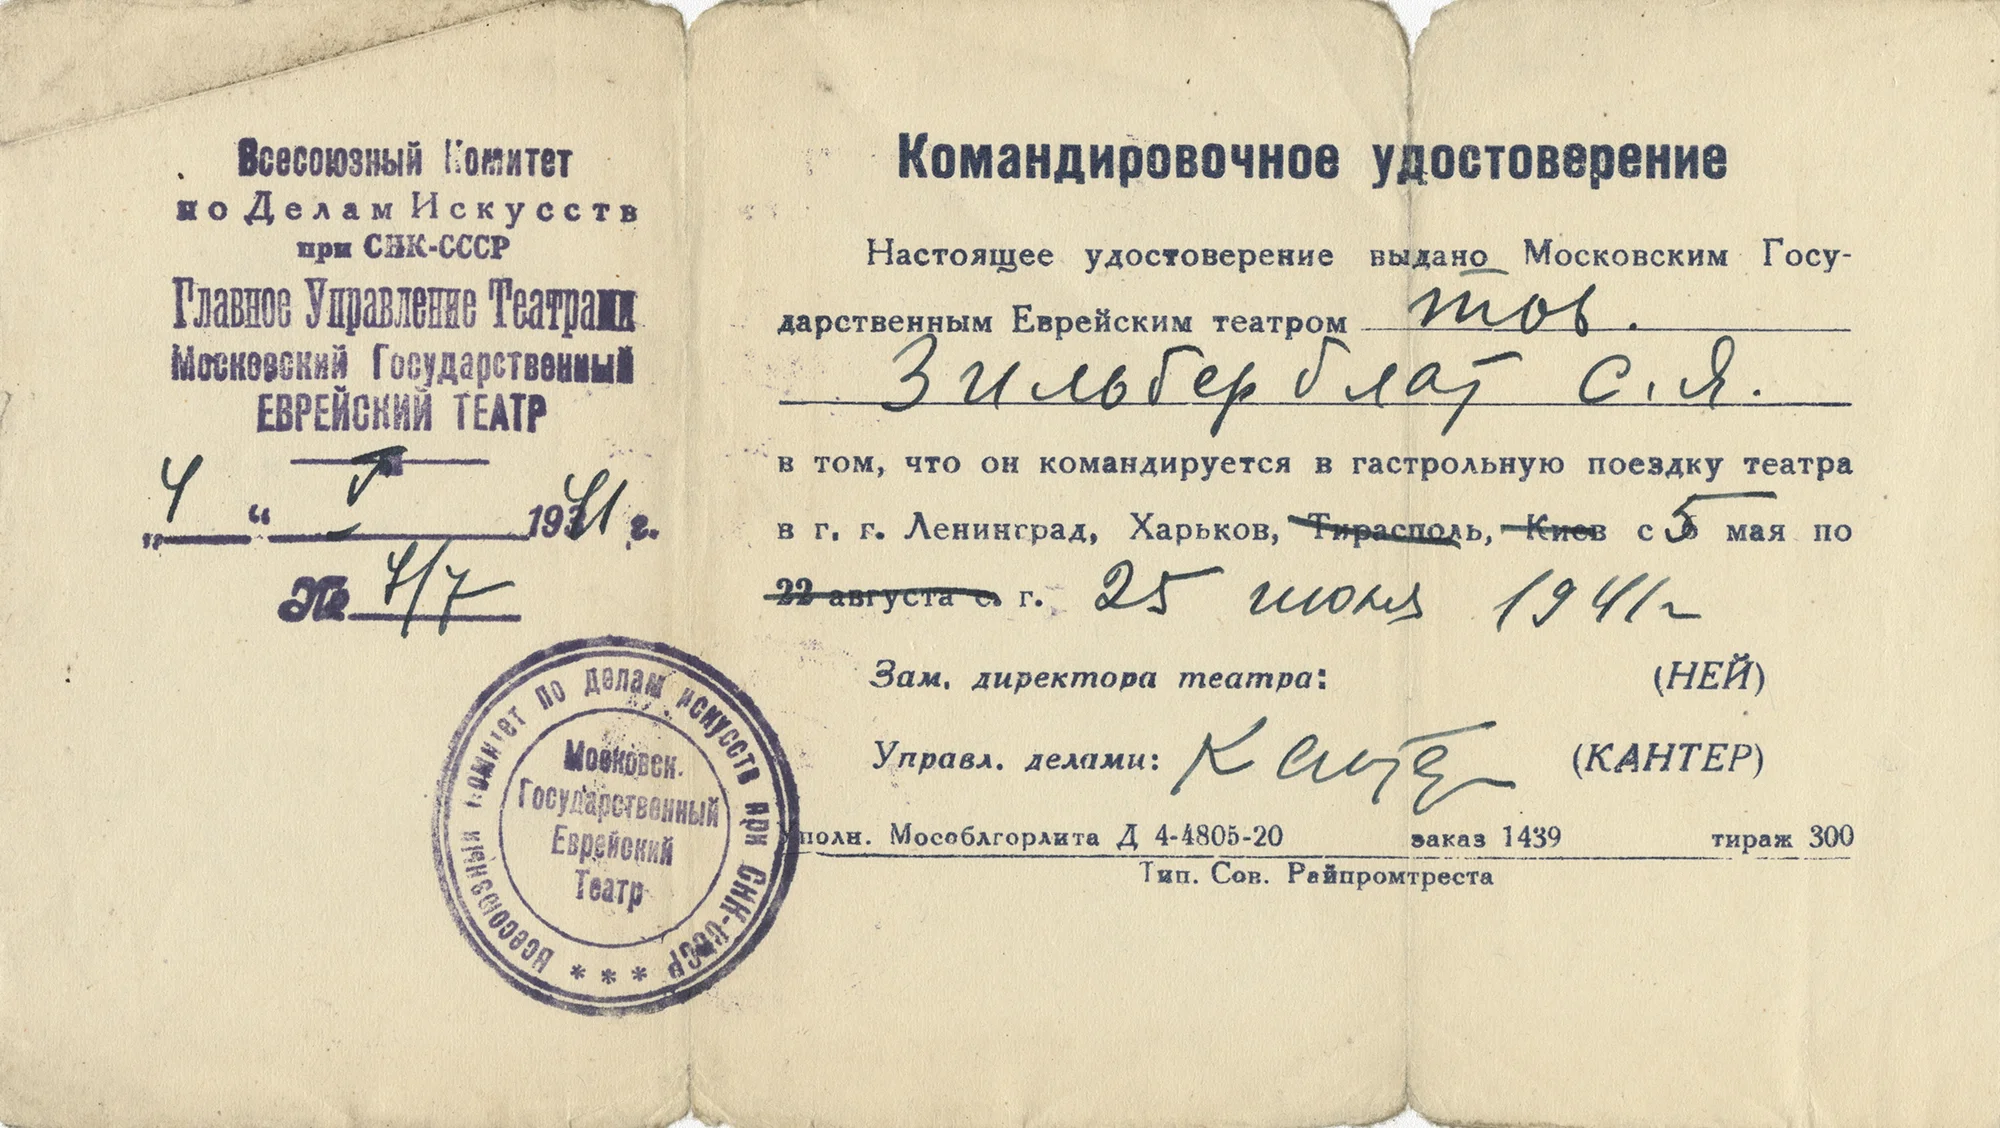 Всесоюзный Комитет
по Делам Искусств
при СНК-СССР
Главное Управление Театрами
Московский Государственный
ЕВРЕЙСКИЙ ТЕАТР
„4“ V 1941 г.
№ 4/7
Всесоюзный комитет по делам искусств при СНК-СССР
* * *
Московск.
Государственный
Еврейский
Театр
Командировочное удостоверение
Настоящее удостоверение выдано Московским Госу-
дарственным Еврейским театром тов.
Зильберблат С. Я.
в том, что он командируется в гастрольную поездку театра
в г. г. Ленинград, Харьков, Тирасполь, Киев с 5 мая по
22 августа с. г. 25 июня 1941 г
Зам. директора театра: (НЕЙ)
Управл. делами: Кантер (КАНТЕР)
полн. Мособлгорлита Д 4-4805-20 заказ 1439 тираж 300
Тип. Сов. Райпромтреста